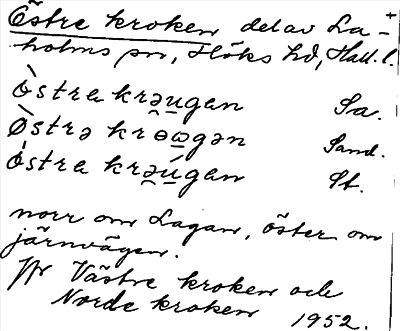 Östre kroken del av La-
holms sn, Höks hd, Hall. l.
òstra krə̯u̱gan Sa.
Òstrə krɵ̯ω̱gən Sand.
òstra krə̯ú̱gan St.
norr om Lagan, öster om
järnvägen.
Jfr Västre kroken och
Norde kroken 1952.